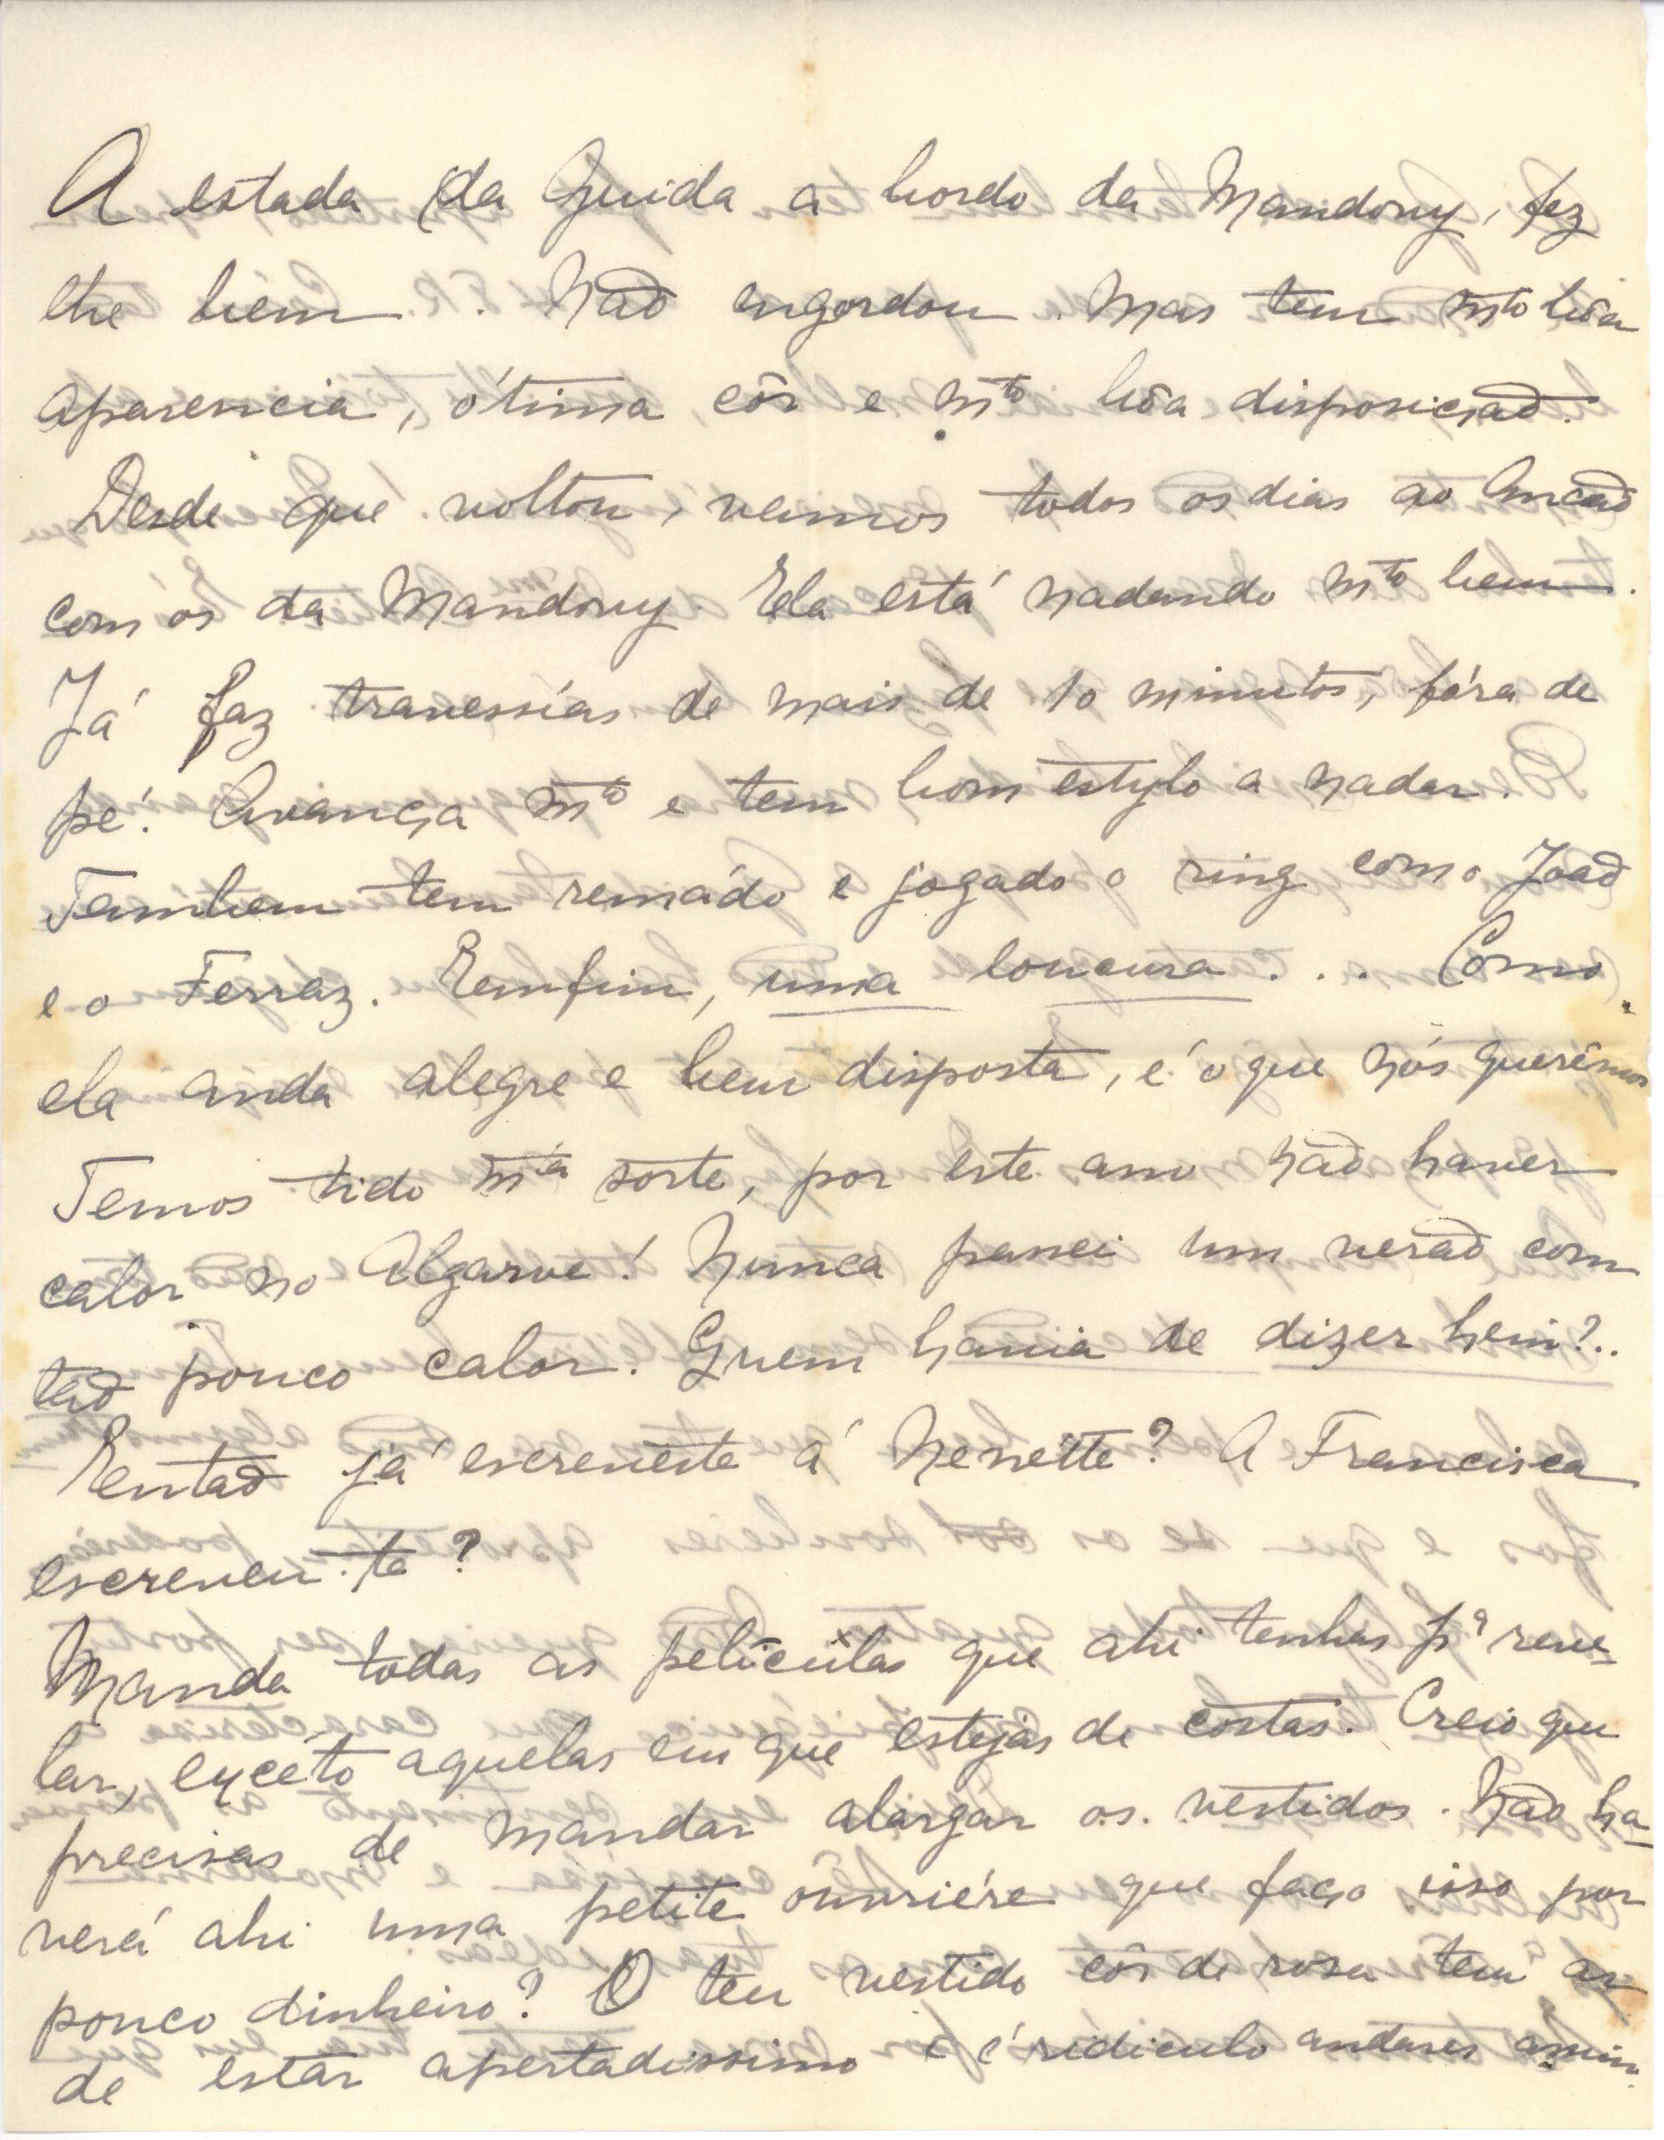 A estada da Guida a bordo da Mandony, fez
lhe bem. Não engordou. Mas tem mto bôa
aparencia, ótima côr e mto bôa disposição.
Desde que voltou, vamos todos os dias ao Ancão
com os da Mandony. Ela está nadando mto bem.
Já faz travessías de mais de 10 minutos, fóra de
pé! Avança mto e tem bom estylo a nadar.
Tambem tem remádo e jogado o ring com o João
e o Ferraz. Emfim, uma loucura... Como
ela anda alegre e bem disposta, é o que nós querêmos
Temos tido mta sorte, por este ano não haver
calor no Algarve! Nunca passei um verão com
tão pouco calor. Quem havia de dizer hein?..
Então já escreveste á Nenette? A Francisca
escreveu-te?
Manda todas as peliculas que ahi tenhas pa reve-
lar, excéto aquelas em que estejas de costas. Creio que
precisas de mandar alargar os vestidos. Não ha-
verá ahi uma petite ouvriére que faça isso por
pouco dinheiro? O teu vestido côr de rosa tem
de estar apertadissimo e é ridiculo andares assim.